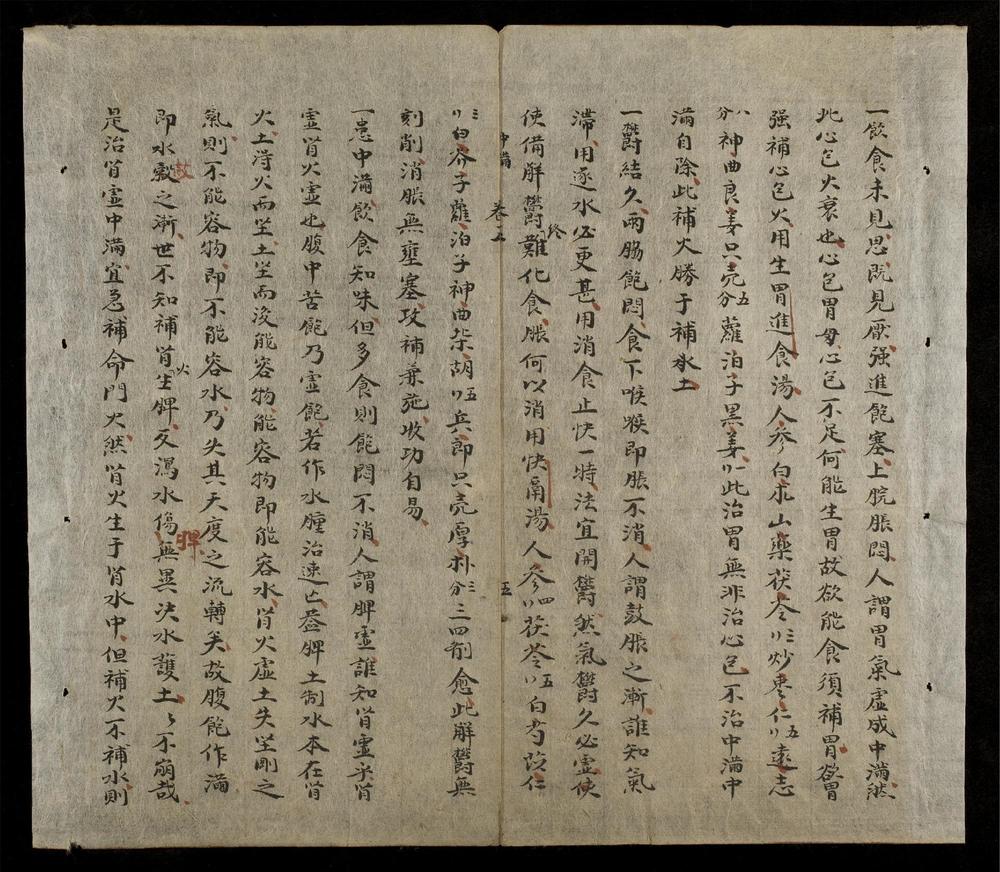 一飲食未見思既見厭強進飽塞上脘脹悶人謂胃氣虛成中滿然
此心包火衰也心包胃母心包不足何能生胃故欲能食須補胃欲胃
强補心包火用生胃進食湯人參白朮山藥茯苓三炒枣仁五遠志
八分神曲良姜只壳五分蘿泊子黑姜一此治胃無非治心包不治中滿中
滿自除此補火勝于補水土
一欝結久兩脇飽悶食下喉喉即脹不消人謂鼓脹之漸誰知氣
滯用逐水必更甚用消食止快一時法宜開欝然氣欝久必虛使
使備解欝終難化食脹何以消用快鬲湯人參四茯苓五白芍苡仁
中滿 卷五 五
三白芥子蘿泊子神曲柴胡五兵郎只壳厚朴三分三四剤愈此解欝無
刻削消脹無壅塞攻補兼施收功自易
一患中滿飲食知味但多食則飽悶不消人謂脾虛誰知肾虛乎肾
虛肾火虛也腹中苦飽乃虛飽若作水腫治速亡盖脾土制水本在肾
火土得火而坚土坚而後能容物能容物即能容水肾火虛土失坚剛之
氣則不能容物即不能容水乃失其天度之流轉矣故腹飽作滿
即水彀之漸世不知補肾火生脾反瀉水傷脾無異决水護土々不崩哉
是治肾虛中滿宜急補命門火然肾火生于肾水中但補火不補水則